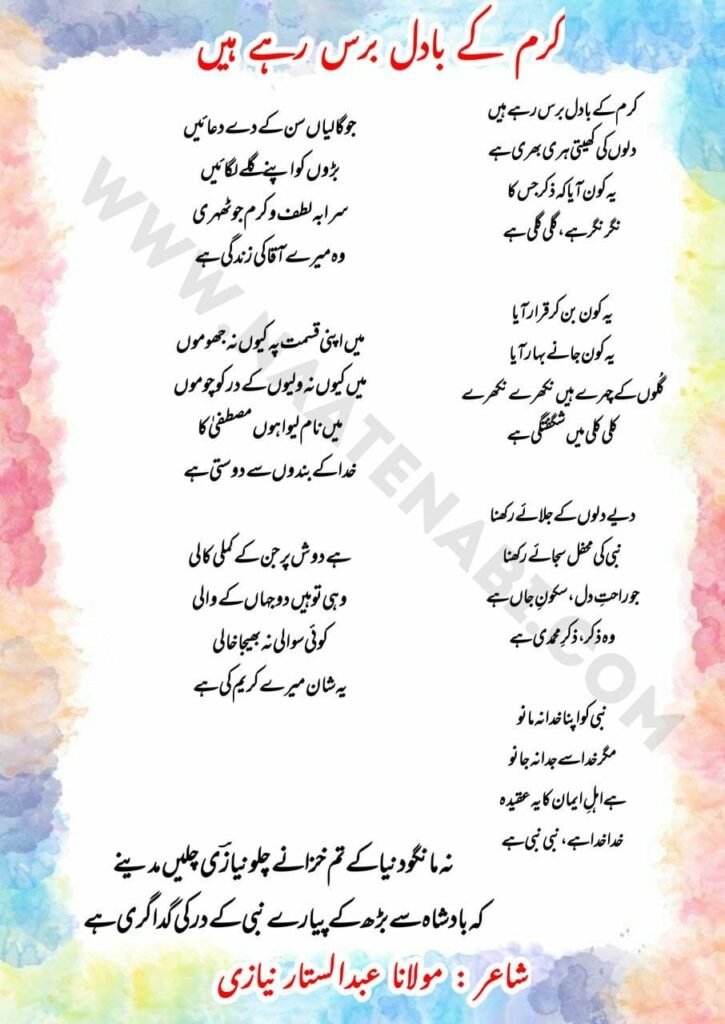 کرم کے بادل برس رہے ہیں
کرم کے بادل برس رہے ہیں
دلوں کی کھیتی ہری بھری ہے
یہ کون آیا کہ ذکر جس کا
نگر نگر ہے، گلی گلی ہے
یہ کون بن کر قرار آیا
یہ کون جانے بہار آیا
گُلوں کے چہرے ہیں نکھرے نکھرے
کلی کلی میں شگفتگی ہے
دیے دلوں کے جلائے رکھنا
نبی کی محفل سجائے رکھنا
جو راحتِ دل، سکونِ جاں ہے
وہ ذکر، ذکرِ محمدی ہے
نبی کو اپنا خدا نہ مانو
مگر خدا سے جدا نہ جانو
ہے اہلِ ایمان کا یہ عقیدہ
خدا خدا ہے، نبی نبی ہے
جو گالیاں سن کے دے دعائیں
بڑوں کو اپنے گلے لگائیں
سرابہ لطف و کرم جو ٹھہری
وہ میرے آقا کی زندگی ہے
میں اپنی قسمت پہ کیوں نہ جھوموں
میں کیوں نہ ولیوں کے در کو چوموں
میں نام لیوا ہوں مصطفیٰ کا
خدا کے بندوں سے دوستی ہے
ہے دوش پر جن کے کملی کالی
وہی تو ہیں دو جہاں کے والی
کوئی سوالی نہ بھیجا خالی
یہ شان میرے کریم کی ہے
نہ مانگو دنیا کے تم خزانے چلو نیازیؔ چلیں مدینے
کہ بادشاہ سے بڑھ کے پیارے نبی کے در کی گداگری ہے
شاعر : مولانا عبدالستار نیازی
WWW.NAATENABI.COM